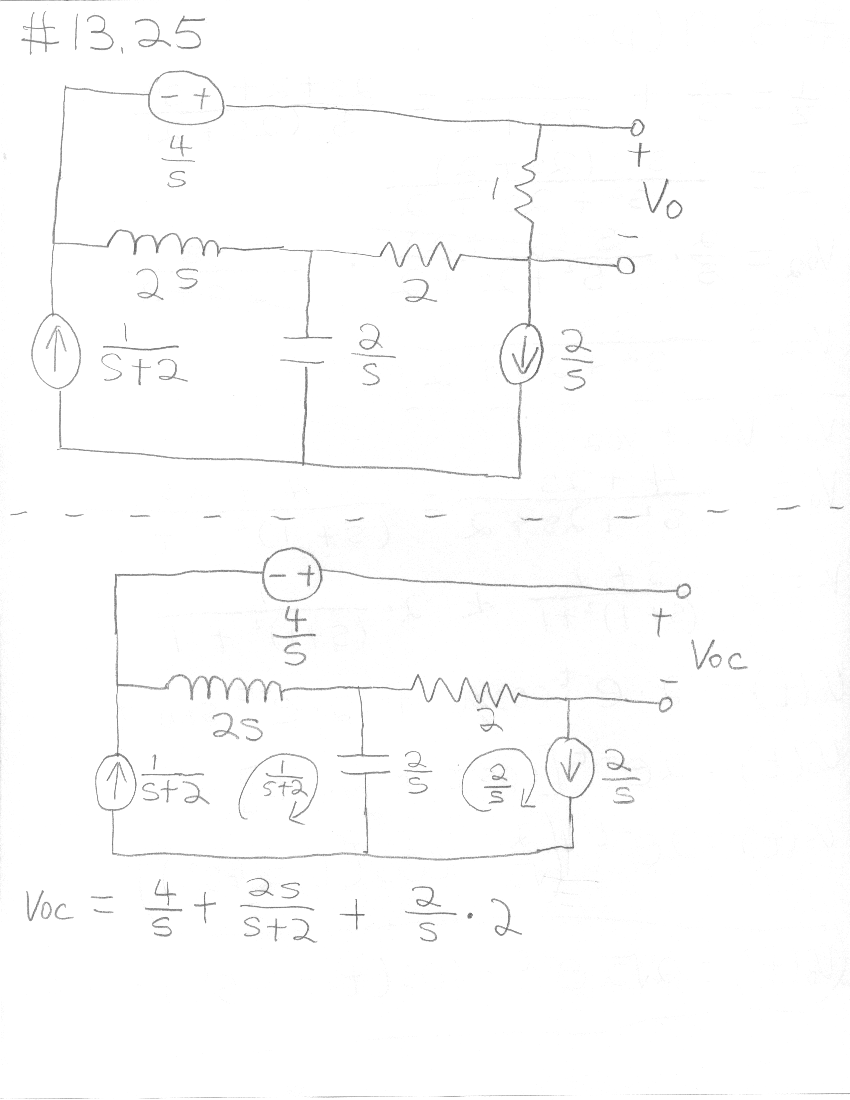 #13.25
- +
4/s
1
+
Vo
-
2s
2
1/(s+2)
2/s
2/s
- +
4/s
+
Voc
-
2s
2
1/(s+2)
1/(s+2)
2/s
2/s
2/s
Voc = 4/s + 2s/(s+2) + 2/s · 2